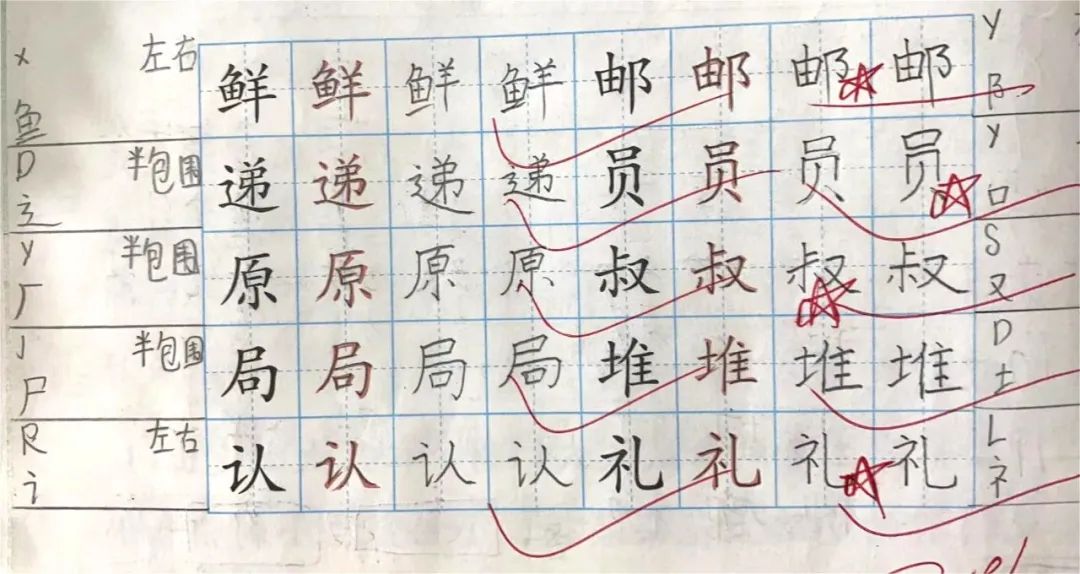 X 左右 鲜 鲜 鲜 鲜 邮 邮 邮 邮 Y
鱼 阝
D 半包围 递 递 递 递 员 员 员 员 Y
辶 口
Y 半包围 原 原 原 原 叔 叔 叔 叔 S
厂 又
J 半包围 局 局 局 局 堆 堆 堆 堆 D
尸 土
R 左右 认 认 认 认 礼 礼 礼 礼 L
讠 礻